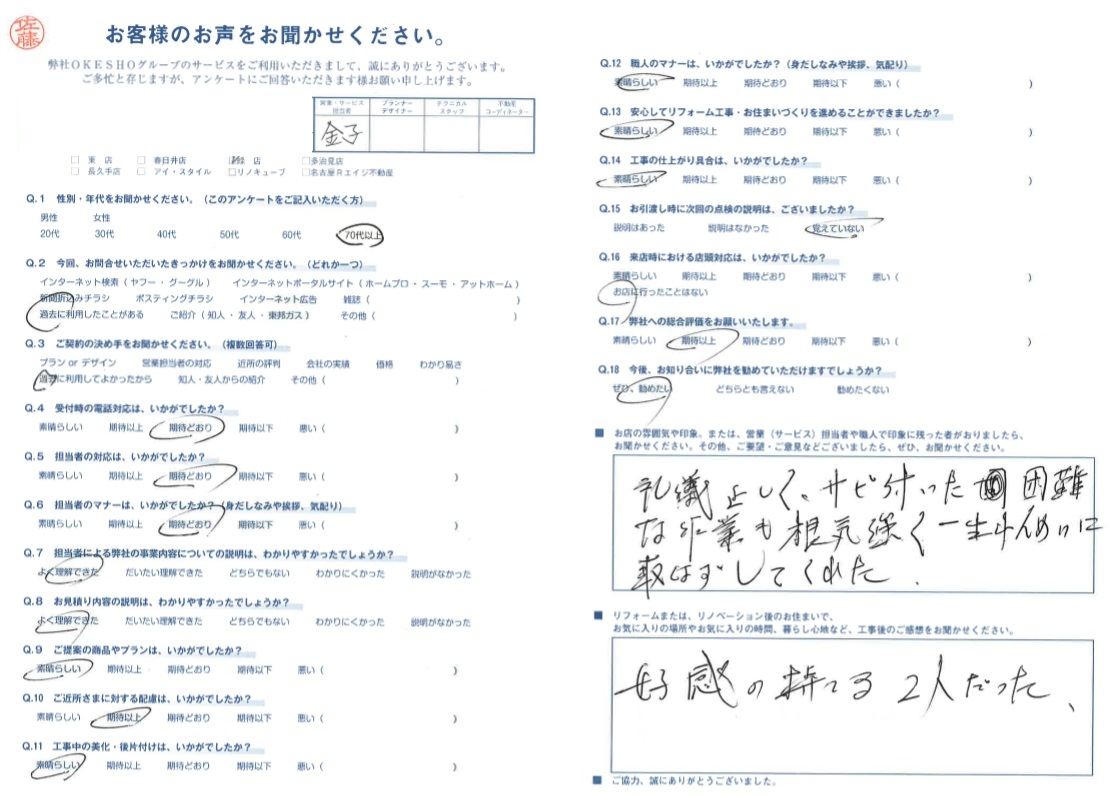 佐藤
お客様のお声をお聞かせください。
弊社OKESHOグループのサービスをご利用いただきまして、誠にありがとうございます。
ご多忙と存じますが、アンケートにご回答いただきます様お願い申し上げます。
営業・サービス担当者 プランナーデザイナー テクニカルスタッフ 不動産コーディネーター
金子
□ 東 店 □ 春日井店 店 □多治見店
□ 長久手店 □ アイ・スタイル □リノキューブ □名古屋Rエイジ不動産
Q.1 性別・年代をお聞かせください。（このアンケートをご記入いただく方）
男性 女性
20代 30代 40代 50代 60代 70代以上
Q.2 今回、お問合せいただいたきっかけをお聞かせください。（どれか一つ）
インターネット検索（ ヤフー ・ グーグル ） インターネットポータルサイト（ ホームプロ ・ スーモ ・ アットホーム ）
新聞折込みチラシ ポスティングチラシ インターネット広告 雑誌（ ）
過去に利用したことがある ご紹介（ 知人 ・ 友人 ・ 東邦ガス ） その他（ ）
Q.3 ご契約の決め手をお聞かせください。（複数回答可）
プラン or デザイン 営業担当者の対応 近所の評判 会社の実績 価格 わかり易さ
過去に利用してよかったから 知人・友人からの紹介 その他（ ）
Q.4 受付時の電話対応は、いかがでしたか？
素晴らしい 期待以上 期待どおり 期待以下 悪い（ ）
Q.5 担当者の対応は、いかがでしたか？
素晴らしい 期待以上 期待どおり 期待以下 悪い（ ）
Q.6 担当者のマナーは、いかがでしたか？（身だしなみや挨拶、気配り）
素晴らしい 期待以上 期待どおり 期待以下 悪い（ ）
Q.7 担当者による弊社の事業内容についての説明は、わかりやすかったでしょうか？
よく理解できた だいたい理解できた どちらでもない わかりにくかった 説明がなかった
Q.8 お見積り内容の説明は、わかりやすかったでしょうか？
よく理解できた だいたい理解できた どちらでもない わかりにくかった 説明がなかった
Q.9 ご提案の商品やプランは、いかがでしたか？
素晴らしい 期待以上 期待どおり 期待以下 悪い（ ）
Q.10 ご近所さまに対する配慮は、いかがでしたか？
素晴らしい 期待以上 期待どおり 期待以下 悪い（ ）
Q.11 工事中の美化・後片付けは、いかがでしたか？
素晴らしい 期待以上 期待どおり 期待以下 悪い（ ）
Q.12 職人のマナーは、いかがでしたか？（身だしなみや挨拶、気配り）
素晴らしい 期待以上 期待どおり 期待以下 悪い（ ）
Q.13 安心してリフォーム工事・お住まいづくりを進めることができましたか？
素晴らしい 期待以上 期待どおり 期待以下 悪い（ ）
Q.14 工事の仕上がり具合は、いかがでしたか？
素晴らしい 期待以上 期待どおり 期待以下 悪い（ ）
Q.15 お引渡し時に次回の点検の説明は、ございましたか？
説明はあった 説明はなかった 覚えていない
Q.16 来店時における店頭対応は、いかがでしたか？
素晴らしい 期待以上 期待どおり 期待以下 悪い（ ）
お店に行ったことはない
Q.17 弊社への総合評価をお願いいたします。
素晴らしい 期待以上 期待どおり 期待以下 悪い（ ）
Q.18 今後、お知り合いに弊社を勧めていただけますでしょうか？
ぜひ、勧めたい どちらとも言えない 勧めたくない
■ お店の雰囲気や印象。または、営業（サービス）担当者や職人で印象に残った者がおりましたら、
お聞かせください。その他、ご要望・ご意見などございましたら、ぜひ、お聞かせください。
礼儀正しく、サビ付いた困難
な作業も根気強く一生けんめいに
取はずしてくれた。
■ リフォームまたは、リノベーション後のお住まいで、
お気に入りの場所やお気に入りの時間、暮らし心地など、工事後のご感想をお聞かせください。
好感の持てる2人だった、
■ ご協力、誠にありがとうございました。